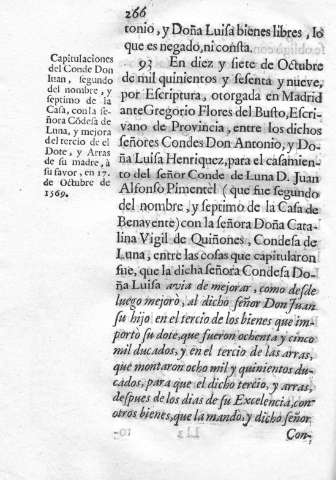 266
tonio, y Doña Luisa bienes libres, lo
que es negado, ni consta.
93 En diez y siete de Octubre
de mil quinientos y sesenta y nueve,
por Escriptura, otorgada en Madrid
ante Gregorio Flores del Busto, Escri-
vano de Provincia, entre los dichos
señores Condes Don Antonio, y Do-
ña Luisa Henriquez, para el casamien-
to del señor Conde de Luna D. Juan
Alfonso Pimentel (que fue segundo
del nombre, y septimo de la Casa de
Benavente) con la señora Doña Cata-
lina Vigil de Quiñones, Condesa de
Luna, entre las cosas que capitularon
fue, que la dicha señora Condesa Do-
ña Luisa avia de mejorar, como desde
luego mejorò, al dicho señor Don Juan
su hijo en el tercio de los bienes que im-
portò su dote, que fueron ochenta y cinco
mil ducados, y en el tercio de las arras,
que montaron ocho mil y quinientos du-
cados, para que el dicho tercio, y arras,
despues de los dias de su Excelencia, con
otros bienes, que la mandò, y dicho señor
Con-
Capitulaciones
del Conde Don
Iuan, segundo
del nombre, y
septimo de la
Casa, con la se-
ñora Cõdesa de
Luna, y mejora
del tercio de el
Dote, y Arras
de su madre, à
su favor, en 17.
de Octubre de
1569.